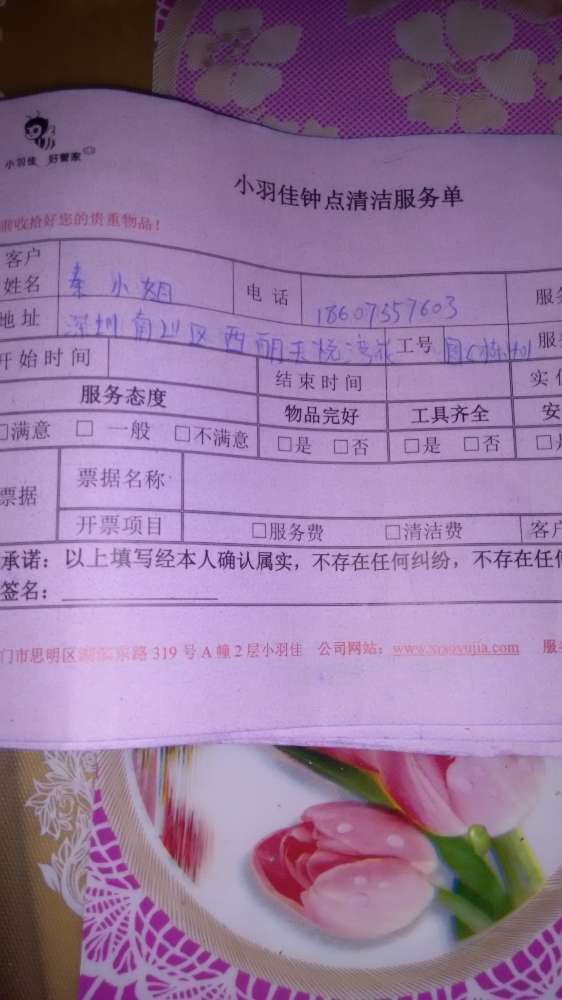 小羽佳 好管家
小羽佳钟点清洁服务单
收拾好您的贵重物品！
客户姓名 秦小姐 电话 18607557603 服务
地址 深圳南山区西丽天悦湾花 工号 服
开始时间 结束时间 实
服务态度 物品完好 工具齐全 安
□满意 □一般 □不满意 □是 □否 □是 □否
票据 票据名称
开票项目 □服务费 □清洁费 客户
承诺：以上填写经本人确认属实，不存在任何纠纷，不存在任
签名：
门市思明区 东路 319 号 A 幢 2 层小羽佳 公司网站：www.xiaoyujia.com 服